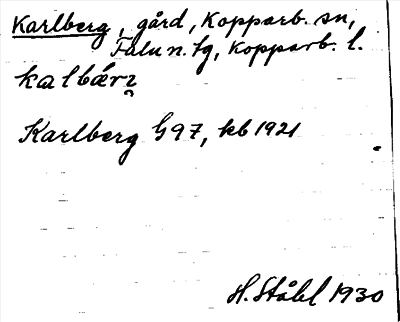 Karlberg, gård, Kopparb. sn,
Falu n. tg, Kopparb. l.
Karlberg G97, kb 1921
H. Ståhl 1930